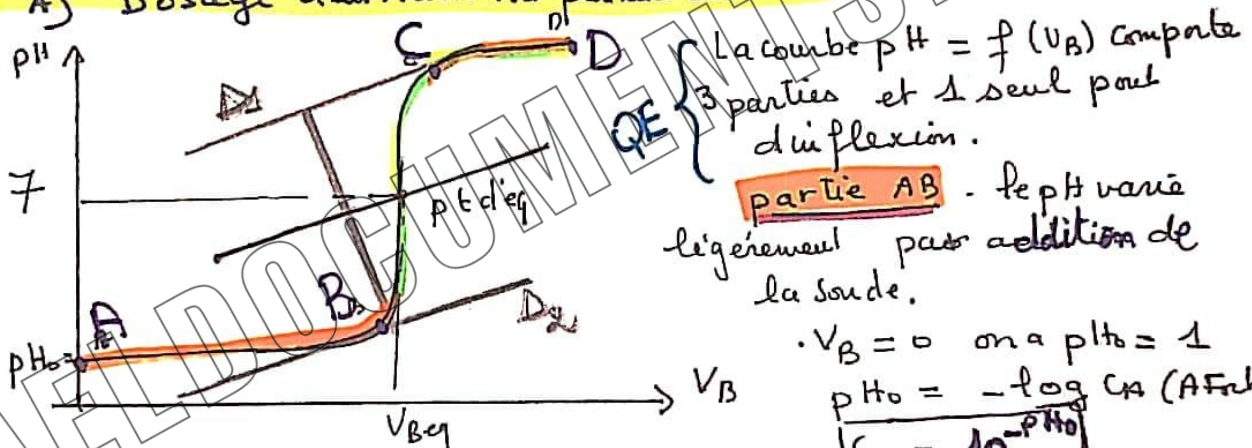 A) Dosage
pH
7
pH₀
A
B
C
D
D1
D2
pt d'eq
V_B
V_Beq
QE { La courbe pH = f (V_B) comporte
3 parties et 1 seul point
d'inflexion.
partie AB - le pH varie
légérement par addition de
la soude.
. V_B = 0 on a pH₀ = 1
pH₀ = - log C_A (AFort
10^-pH₀
DEVELDOCUMENTS